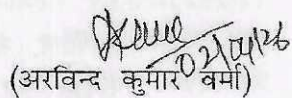 02/04/26
(अरविन्द कुमार वर्मा)